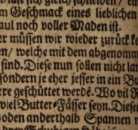 em Geschmack eines lieblichen
aul noch voller Maden ist.
er müssen wir wieder zurück
en/ welche mit dem abgenomm
sind. Diese nun sollen nicht lan
sondern je eher jesser in ein
ere geschüttet werdē. Wo vil R
viel Butter-Fässer seyn. Diese
oden anderthalb Spannen